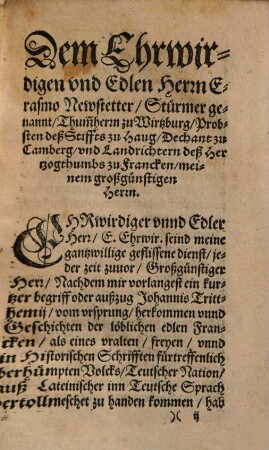 Dem Ehrwir-
digen vnd Edlen Herrn E-
rasmo Newstetter / Stürmer ge-
nannt / Thum̃herrn zu Wirtzburg / Prob-
sten deß Stiffts zu Haug / Dechant zu
Camberg / vnd Landrichtern deß Her
tzogthumbs zu Francken / mei-
nem großgünstigen
Herrn.
EHRwirdiger vnnd Edler
Herr / E. Ehrwir. seind meine
gantzwillige geflissene dienst / je-
der zeit zuuor / Großgünstiger
Herr / Nachdem mir vorlangest ein kur-
tzer begriff oder außzug Johannis Tritt-
hemij / vom vrsprung / herkommen vnnd
Geschichten der löblichen edlen Fran-
cken / als eines vralten / freyen / vnnd
in Historischen Schrifften fürtreffenlich
berhümpten Volcks / Teutscher Nation /
auß Lateinischer inn Teutsche Sprach
vertollmeschet zu handen kommen / hab
)( ij